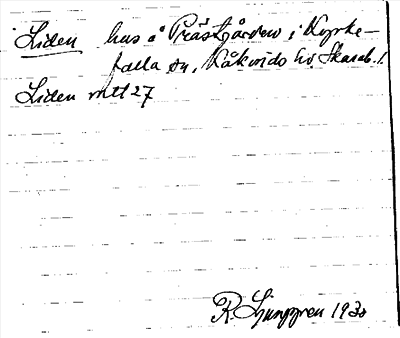 Liden hus å Prästgården i Kyrke-
falla sn, Kåkinds hd Skarab. l.
Liden mtl 27
R. Ljunggren 1930